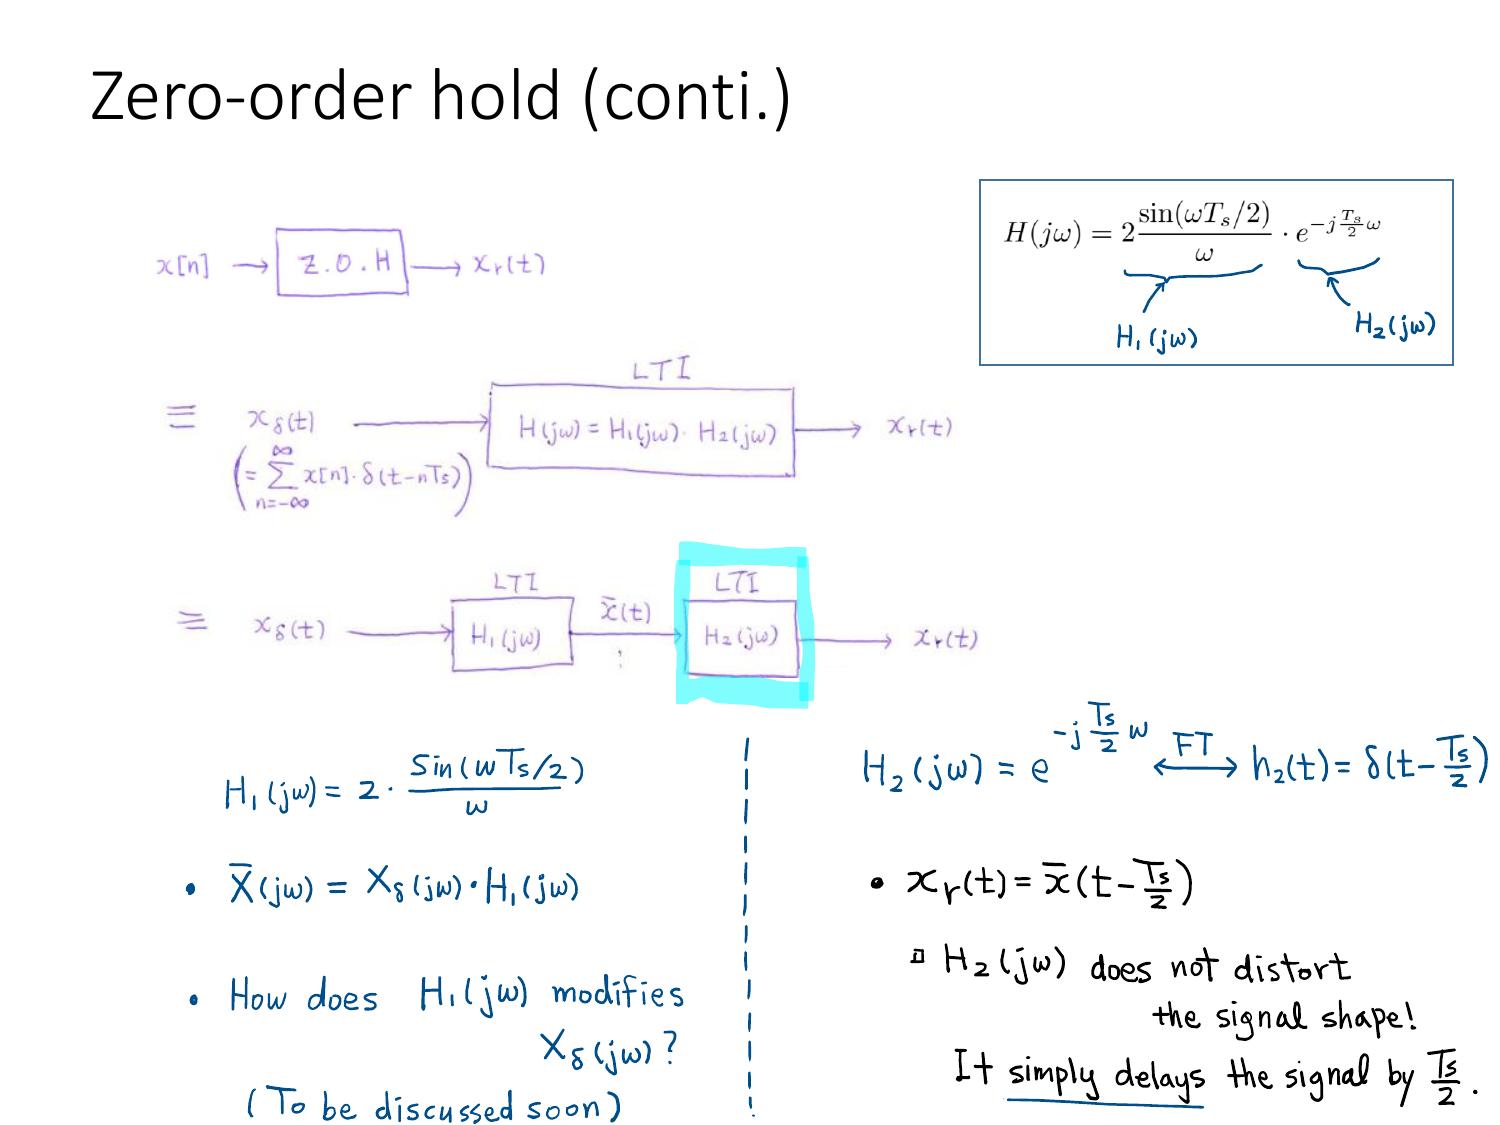 Zero-order hold (conti.)
H(jω) = 2 sin(ωTₛ/2)/ω · e^{-j (Tₛ/2) ω}
H₁(jω)
H₂(jω)
x[n] → Z.O.H → xᵣ(t)
LTI
≡ x_δ(t) → H(jω) = H₁(jω) · H₂(jω) → xᵣ(t)
(= ∑_{n=-∞}^{∞} x[n]·δ(t-nTs))
LTI LTI
≡ x_δ(t) → H₁(jω) x̄(t) → H₂(jω) → xᵣ(t)
H₁(jω) = 2 · sin(ωTs/2)/ω
• X̄(jω) = X_δ(jω)·H₁(jω)
• How does H₁(jω) modifies
X_δ(jω)?
(To be discussed soon)
H₂(jω) = e^{-j (Ts/2) ω} ⟷FT h₂(t) = δ(t - Ts/2)
• xᵣ(t) = x̄(t - Ts/2)
▫ H₂(jω) does not distort
the signal shape!
It simply delays the signal by Ts/2.